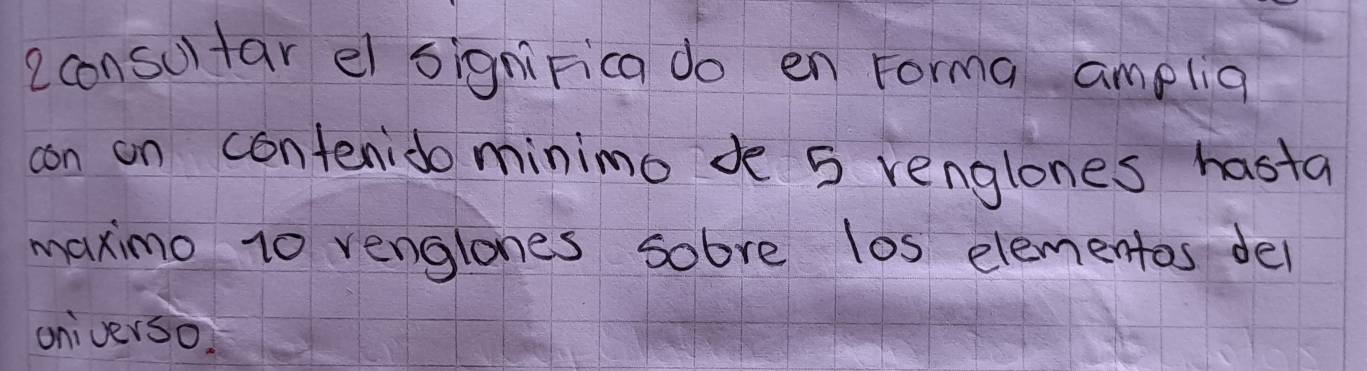 2 consultar el significado en forma amplia
con un contenido minimo de 5 renglones hasta
maximo 10 renglones sobre los elementos del
universo.